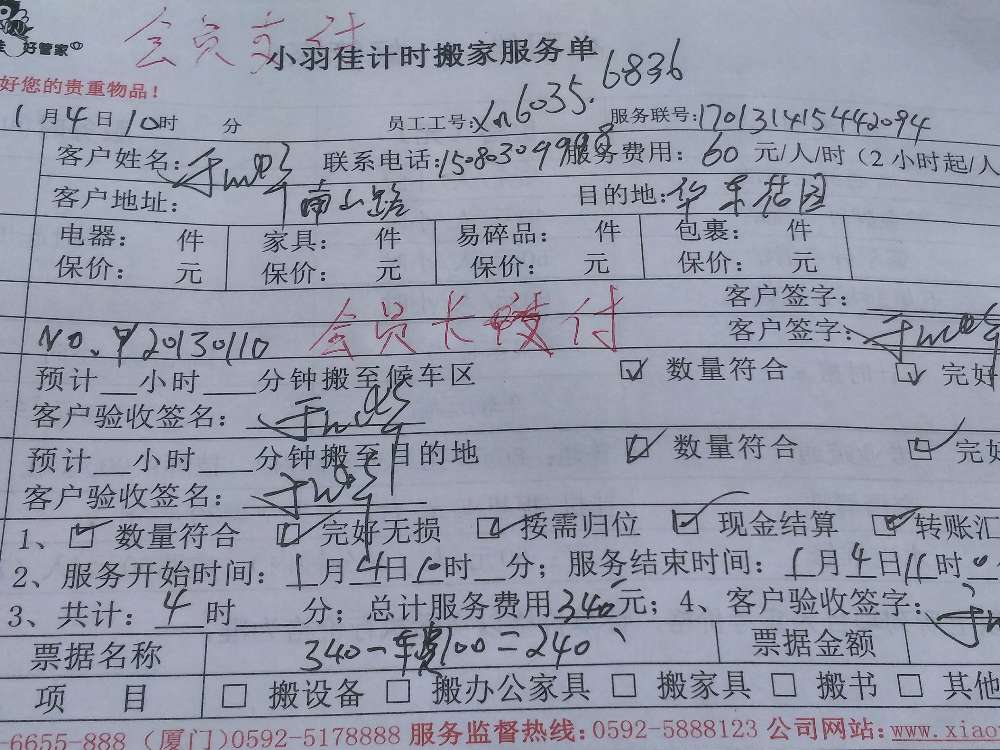 好管家
会员支付
小羽佳计时搬家服务单
好您的贵重物品！
1月4日10时 分 员工工号: 6035.6836 服务联号:170131415442094
客户姓名: 联系电话:15080309998 服务费用: 60元/人/时（2小时起/人
客户地址: 南山路 目的地: 华东花园
电器: 件 家具: 件 易碎品: 件 包裹: 件
保价: 元 保价: 元 保价: 元 保价: 元
客户签字:
NO. 20130110 会员卡支付 客户签字:
预计__小时___分钟搬至候车区 ☑ 数量符合 ☑ 完好
客户验收签名:
预计__小时___分钟搬至目的地 ☑ 数量符合 ☑ 完好
客户验收签名:
1、☑ 数量符合 ☑ 完好无损 ☑ 按需归位 ☑ 现金结算 ☑ 转账汇
2、服务开始时间: 1月4日10时__分; 服务结束时间: 1月4日11时
3、共计: 4时____分; 总计服务费用340元; 4、客户验收签字:
票据名称 340-车费100=240 票据金额
项 目 □ 搬设备 □ 搬办公家具 □ 搬家具 □ 搬书 □ 其他
-6655-888 (厦门)0592-5178888 服务监督热线:0592-5888123 公司网站:www.xiao